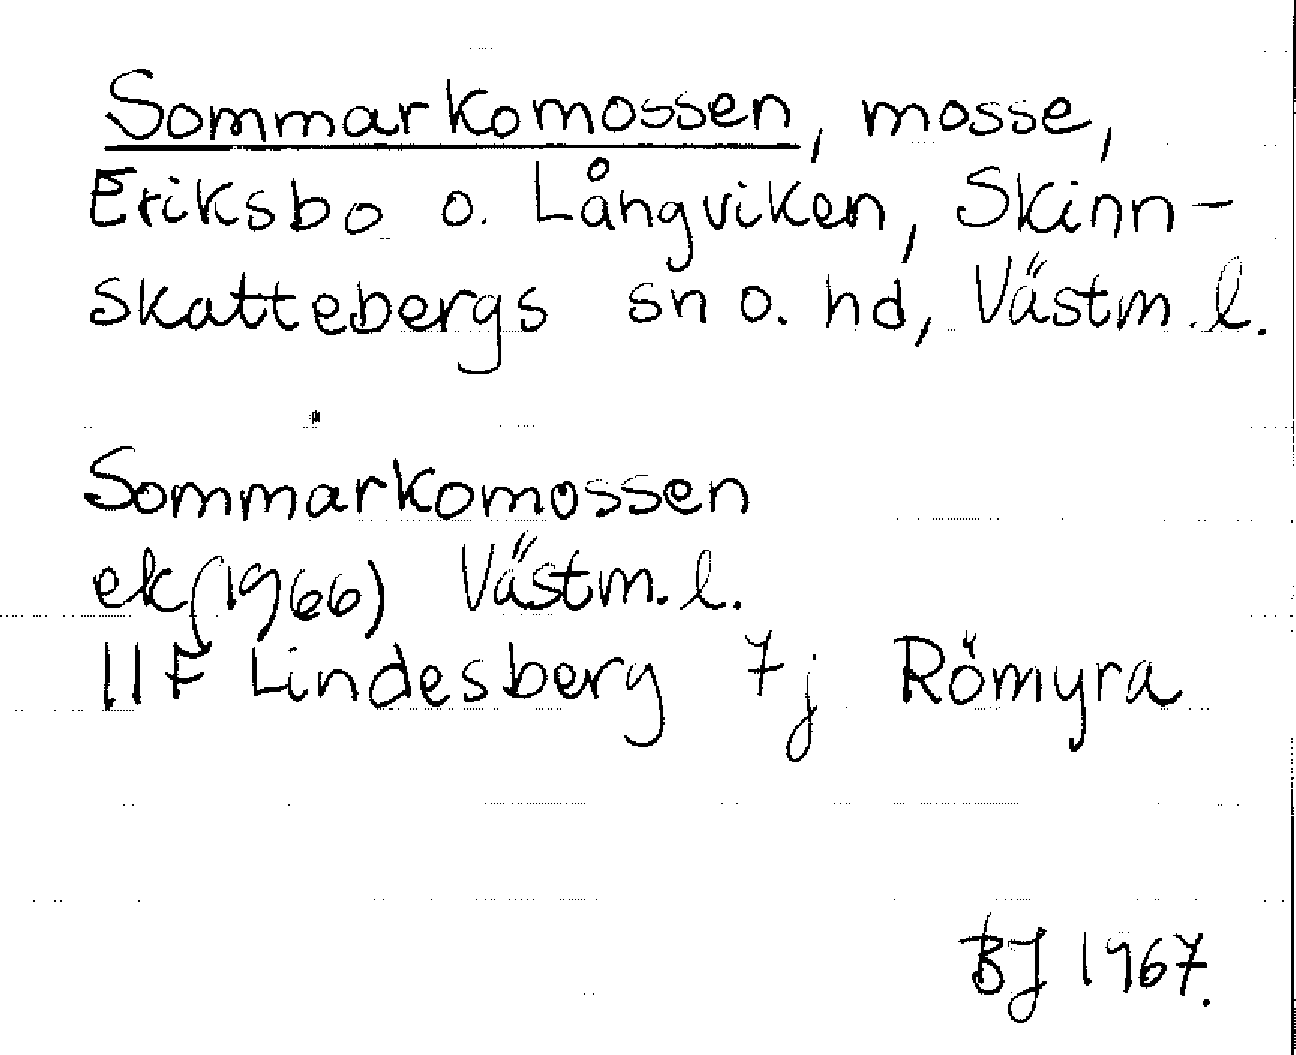 Sommarkomossen, mosse,
Eriksbo o. Långviken, Skinn-
skattebergs sn o. hd, Västm. l.
Sommarkomossen
ek (1966) Västm. l.
11F Lindesberg 7j Römyra
BJ 1967.